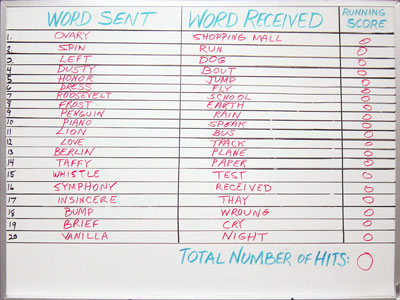 WORD SENT WORD RECEIVED RUNNING SCORE
1. OVARY SHOPPING MALL 0
2. SPIN RUN 0
3. LEFT DOG 0
4 DUSTY BOUT 0
5 HONOR JUMP 0
6 DRESS FLY 0
7 ROOSEVELT SCHOOL 0
8 FROST EARTH 0
9 PENGUIN RAIN 0
10 PIANO SPEAK 0
11 LION BUS 0
12 LOVE TRACK 0
13 BERLIN PLANE 0
14 TAFFY PAPER 0
15 WHISTLE TEST 0
16 SYMPHONY RECEIVED 0
17 INSINCERE THAY 0
18 BUMP WROUNG 0
19 BRIEF CRY 0
20 VANILLA NIGHT 0
TOTAL NUMBER OF HITS: 0